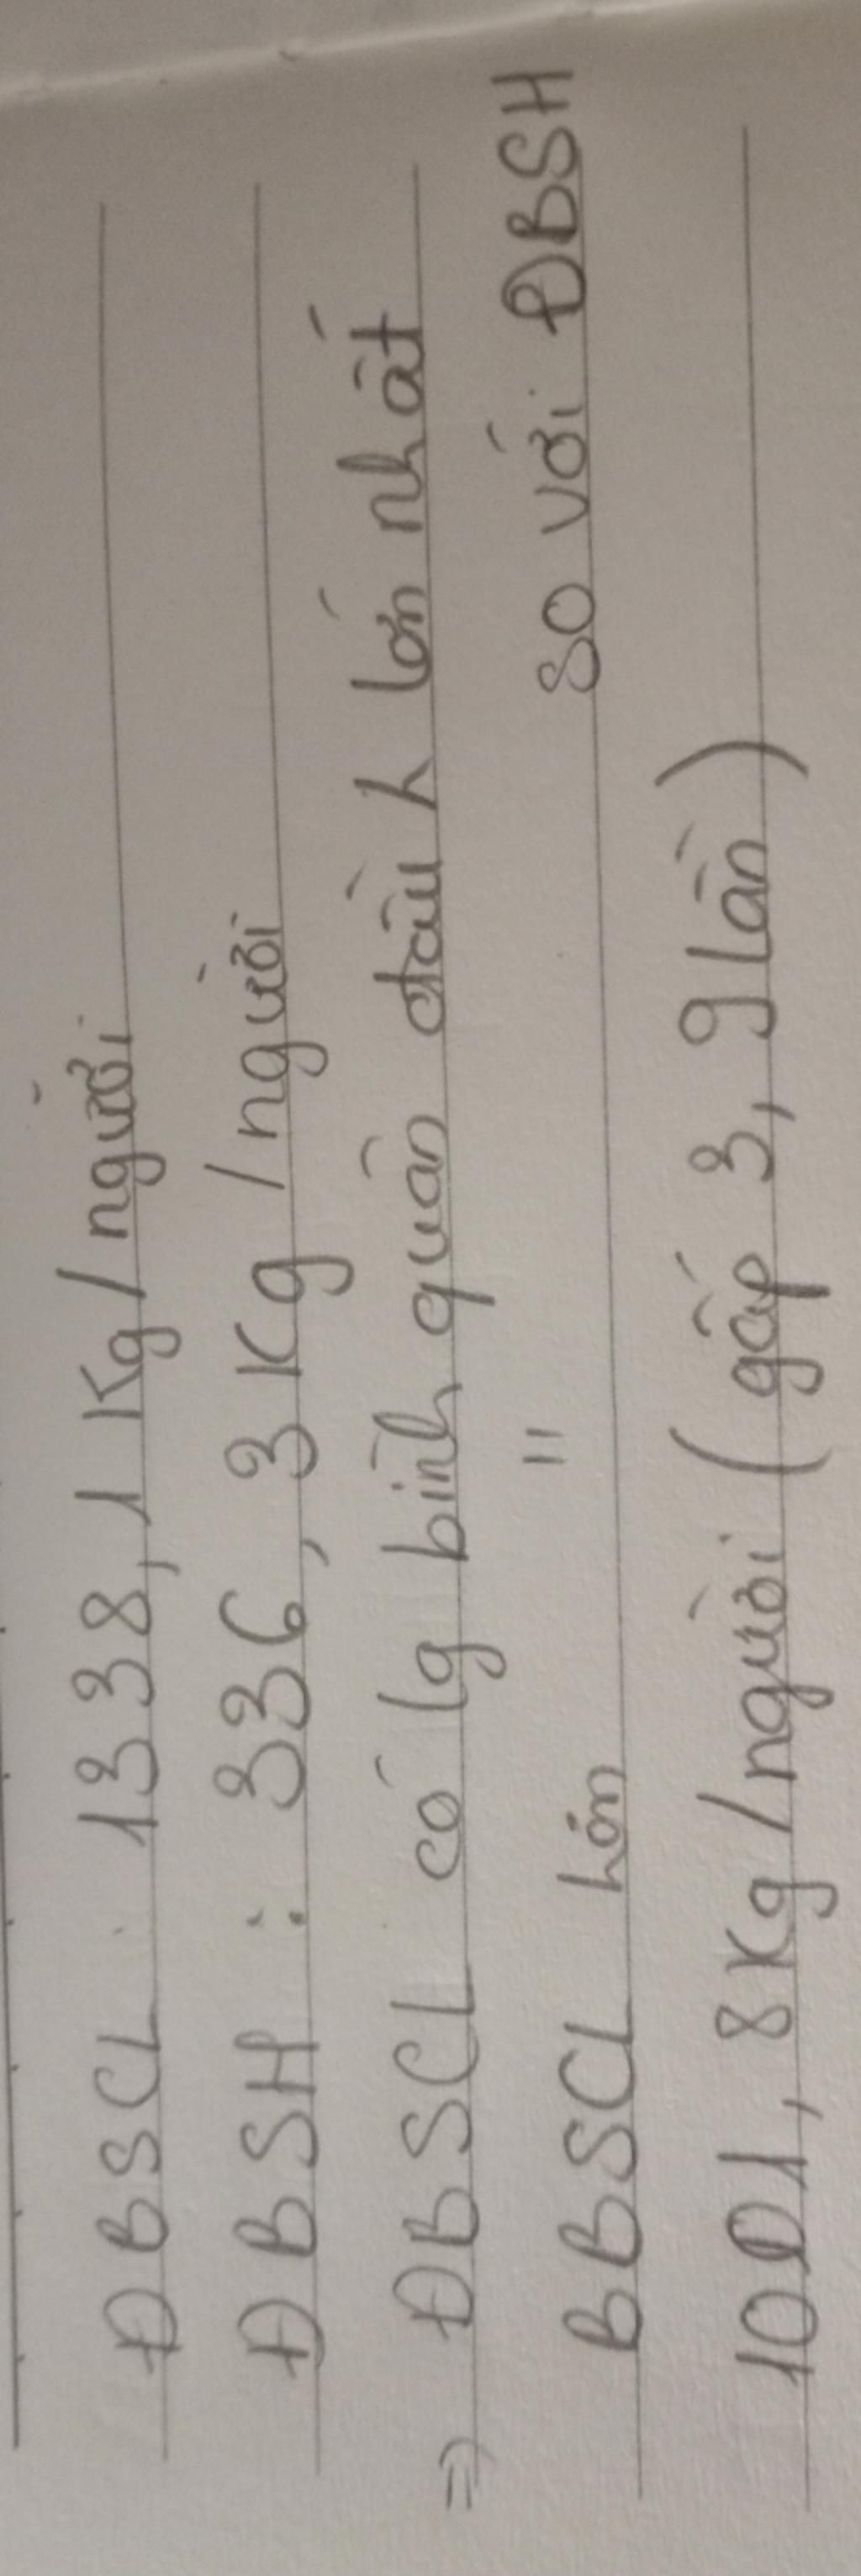 ĐBSCL : 1338,1 Kg/người
ĐBSH : 336,3 Kg/người
=> ĐBSCL có lg bình quân đầu λ lớn nhất
BBSCL hơn " so với ĐBSH
1001,8Kg/người (gấp 3,9lần)